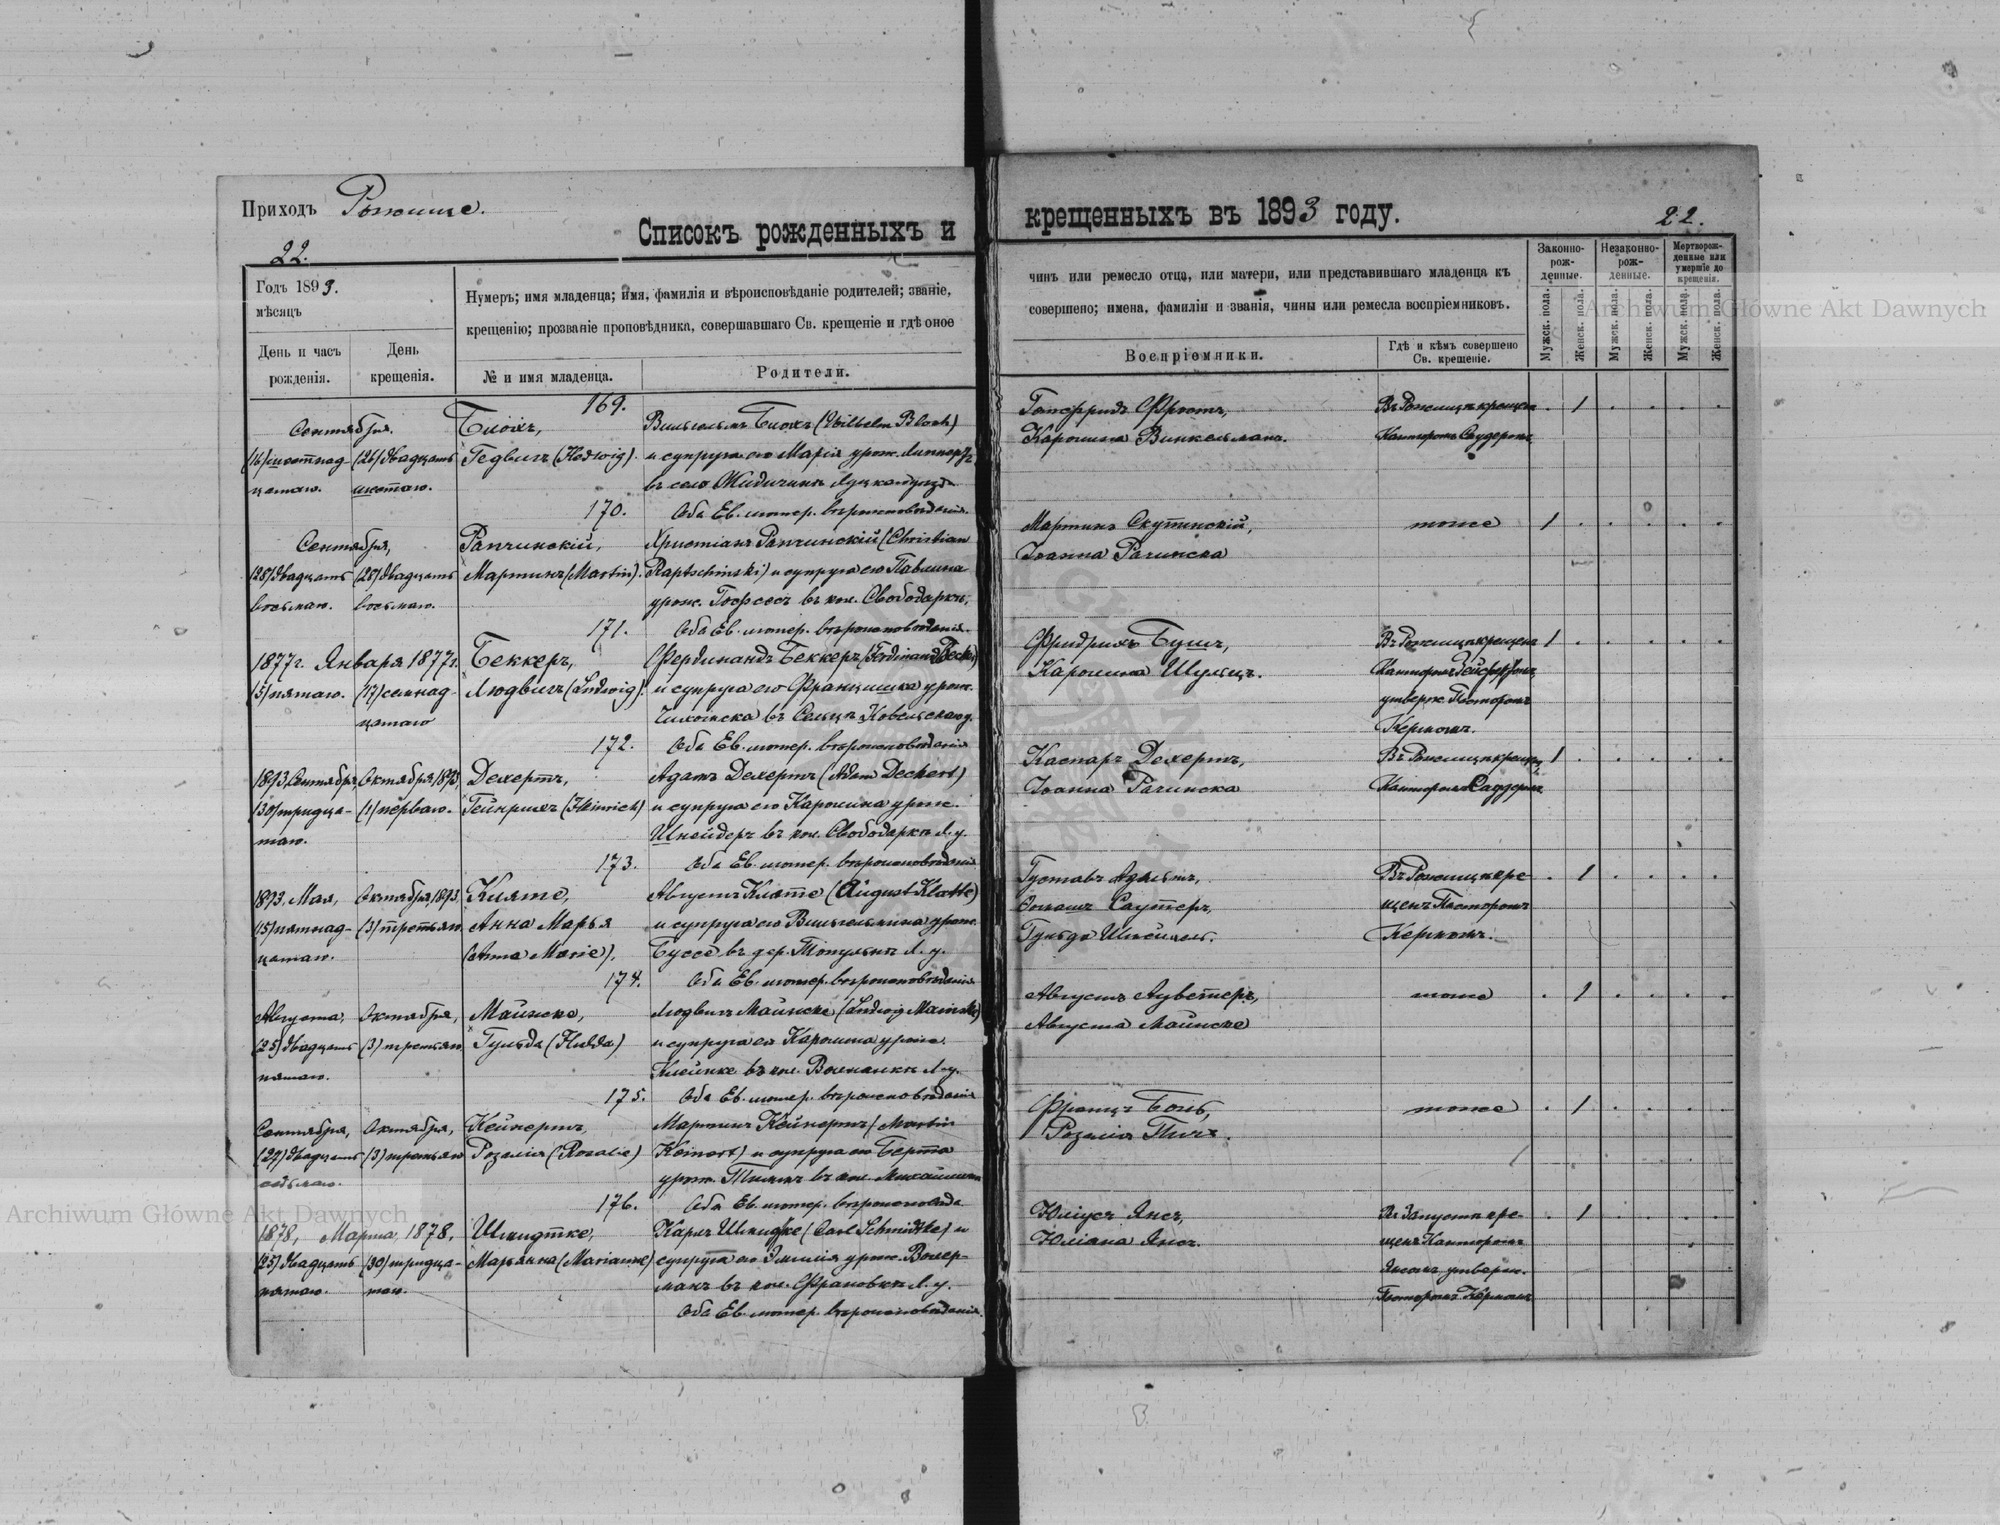 Приходъ Рожище.
Списокъ рожденныхъ и
22.
Годъ 1893.
мѣсяцъ
Нумеръ; имя младенца; имя, фамилія и вѣроисповѣданіе родителей; званіе,
крещенію; прозваніе проповѣдника, совершавшаго Св. крещеніе и гдѣ оное
День и часъ
рожденія.
День
крещенія.
№ и имя младенца.
Родители.
169.
Сентября.
(16) шестнад-
цатаго.
(26) двадцать
шестаго.
Блохъ,
Гедвигъ (Hedwig).
Вильгельмъ Блохъ (Wilhelm Bloch)
и супруга его Марія урож. Липпертъ
въ селѣ Жидичинѣ Луцкаго уѣзда
Оба Ев. лютер. вѣроисповѣданія.
170.
Сентября,
(28) двадцать
восьмаго.
(28) двадцать
восьмаго.
Рапчинскій,
Мартинъ (Martin).
Христіанъ Рапчинскій (Christian
Raptschinski) и супруга его Павлина
урож. въ кол. Свободаркѣ,
Оба Ев. лютер. вѣроисповѣданія.
171.
1877 г. Января 1877 г.
(5) пятаго.
(17) семнад-
цатаго
Беккеръ,
Людвигъ (Ludwig).
Фердинандъ Беккеръ (Ferdinand Becker)
и супруга его Францишка урож.
въ Сельцѣ Ковельскаго у.
Оба Ев. лютер. вѣроисповѣданія
172.
1893, Сентября,
(30) тридца-
таго.
Октября, 1893,
(1) перваго.
Дехертъ,
Гейнрихъ (Heinrich)
Адамъ Дехертъ (Adam Dechert)
и супруга его Каролина урож.
Шнейдеръ въ кол. Свободаркѣ Л. у.
Оба Ев. лютер. вѣроисповѣданія
173.
1893, Мая,
(15) пятнад-
цатаго.
Октября, 1893,
(3) третьяго
Клятте,
Анна Марья
(Anna Marie),
Августъ Клятте (August Klatte)
и супруга его Вильгельмина урож.
Буссе въ дер. Топульнѣ Л. у.
Оба Ев. лютер. вѣроисповѣданія
174.
Августа,
(25) двадцать
пятаго.
Октября,
(3) третьяго
Майнске,
Гульда (Hulda)
Людвигъ Майнске (Ludwig Mainske)
и супруга его Каролина урож.
Клейнке въ кол. Л. у.
Оба Ев. лютер. вѣроисповѣданія
175.
Сентября,
(27) двадцать
седьмаго.
Октября,
(3) третьяго
Кейнертъ,
Розалія (Rosalie)
Мартинъ Кейнертъ (Martin
Keinert) и супруга его Берта
урож. въ кол.
Оба Ев. лютер. вѣроисповѣда
176.
1878, Марта, 1878,
(25) двадцать
пятаго.
(30) тридца-
таго.
Шмидтке,
Марьянна (Marianne)
Карлъ Шмидтке (Carl Schmidtke) и
супруга его Эмилія урож. Волер-
манъ въ кол. Франовкѣ Л. у.
Оба Ев. лютер. вѣроисповѣданія.
крещенныхъ въ 1893 году.
22.
чинъ или ремесло отца, или матери, или представившаго младенца къ
совершено; имена, фамиліи и званія, чины или ремесла воспріемниковъ.
Воспріемники.
Гдѣ и кѣмъ совершено
Св. крещеніе.
Законно-
рож-
денные.
Незаконно-
рож-
денные.
Мертворож-
денные или
умершіе до
крещенія.
Мужск. пола.
Женск. пола.
Мужск. пола.
Женск. пола.
Мужск. пола.
Женск. пола.
Готфридъ
Каролина Винкельманъ.
Въ Рожищѣ крещен
Канторомъ
. 1 . . . .
Мартинъ Скутинскій,
Іоанна Рачинска
тоже
1 . . . . .
Фридрихъ Бушъ,
Каролина Шульцъ.
Въ Рожищѣ крещенъ
Канторомъ
утверж. Пасторомъ
Кермомъ.
1 . . . . .
Каспаръ Дехертъ,
Іоанна Рачинска
Въ Рожищѣ крещенъ
Канторомъ
1 . . . . .
Густавъ
Саутеръ,
Гульда
Въ Рожищѣ кре-
щенъ Пасторомъ
Кермомъ.
. 1 . . . .
Августъ
Августа Майнске
тоже
. 1 . . . .
Францъ
Розалія
тоже
. 1 . . . .
Юліусъ Янсъ,
Юліана Янсъ.
Въ Запустѣ кре-
щенъ Канторомъ
Янсомъ, утверж.
Пасторомъ Кермомъ
. 1 . . . .
Archiwum Główne Akt Dawnych
Archiwum Główne Akt Dawnych